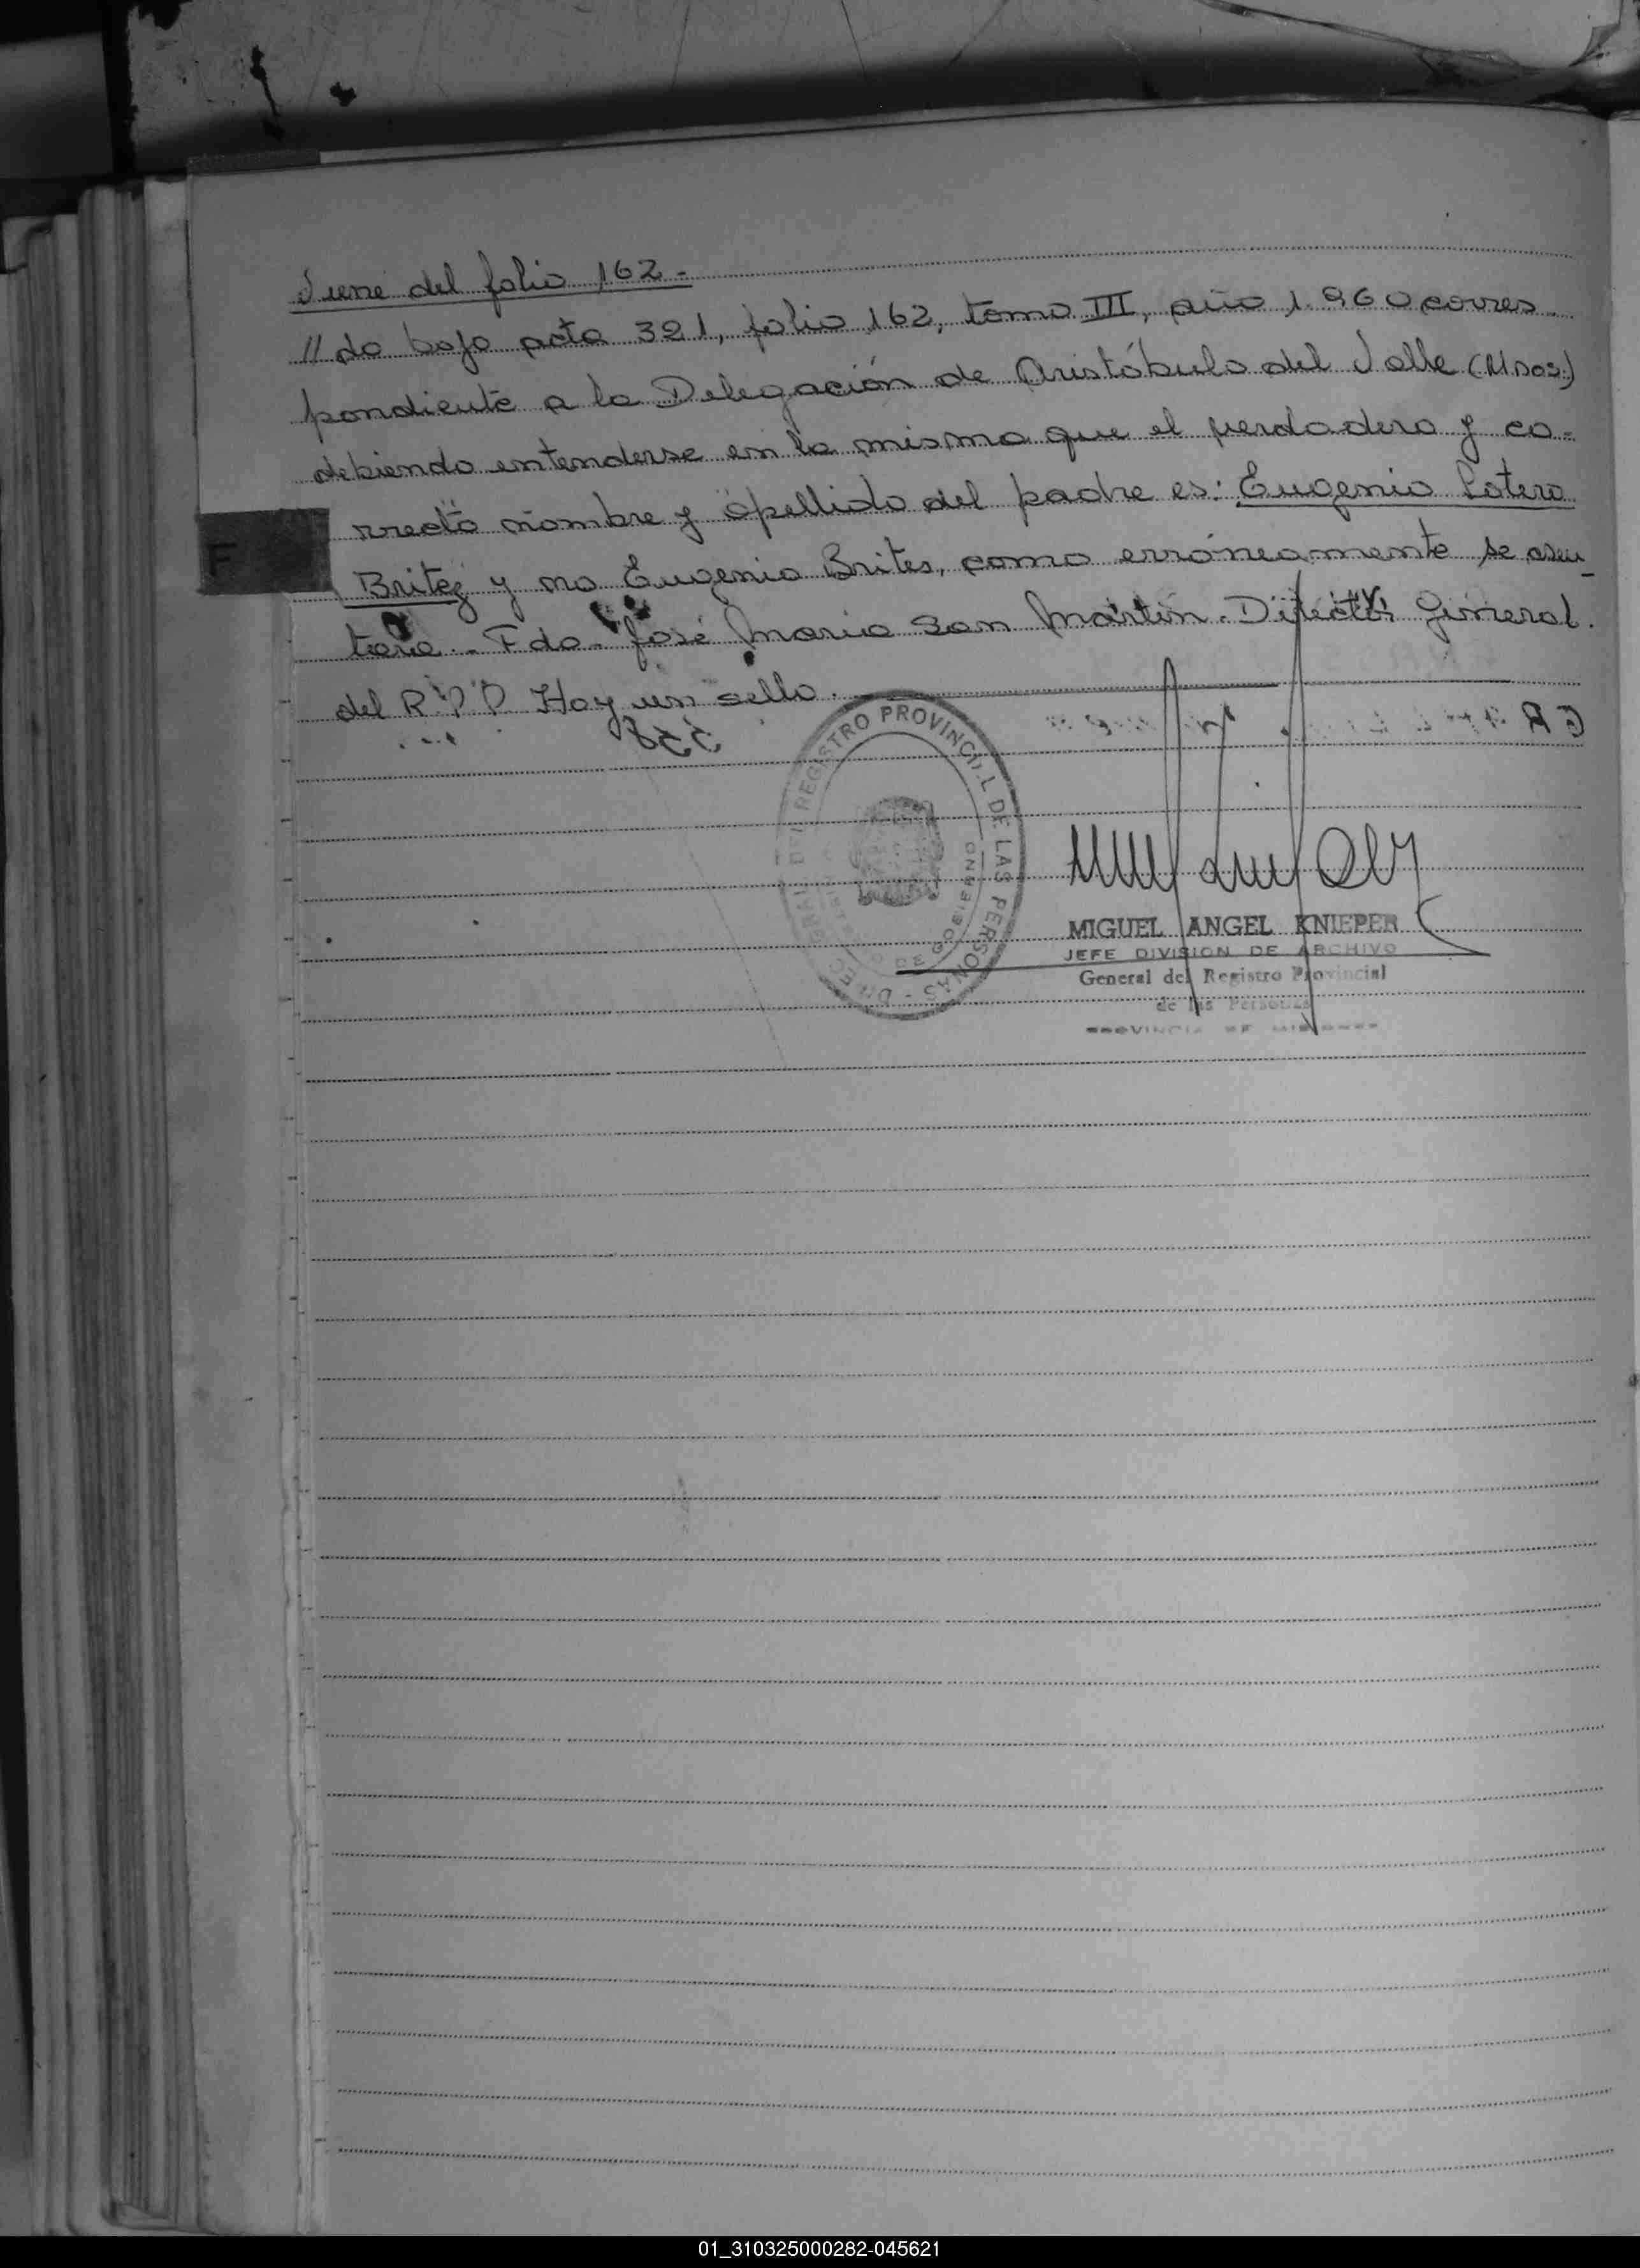 Viene del folio 162.-
//do bajo acta 321, folio 162, tomo III, año 1.960 corres-
pondiente a la Delegación de Aristóbulo del Valle (Mnes.)
debiendo entenderse en la misma que el verdadero y co-
rrecto nombre y apellido del padre es: Eugenio Sotero
Britez y no Eugenio Brites, como erróneamente se asen-
tara.- Fdo. José Maria San Martin. Director General.
del R.P.P. Hay un sello.
REGISTRO PROVINCIAL DE LAS PERSONAS
DE GOBIERNO
MIGUEL ANGEL KNIEPER
JEFE DIVISION DE ARCHIVO
General del Registro Provincial
de las Personas
PROVINCIA DE MISIONES
F
01_310325000282-045621